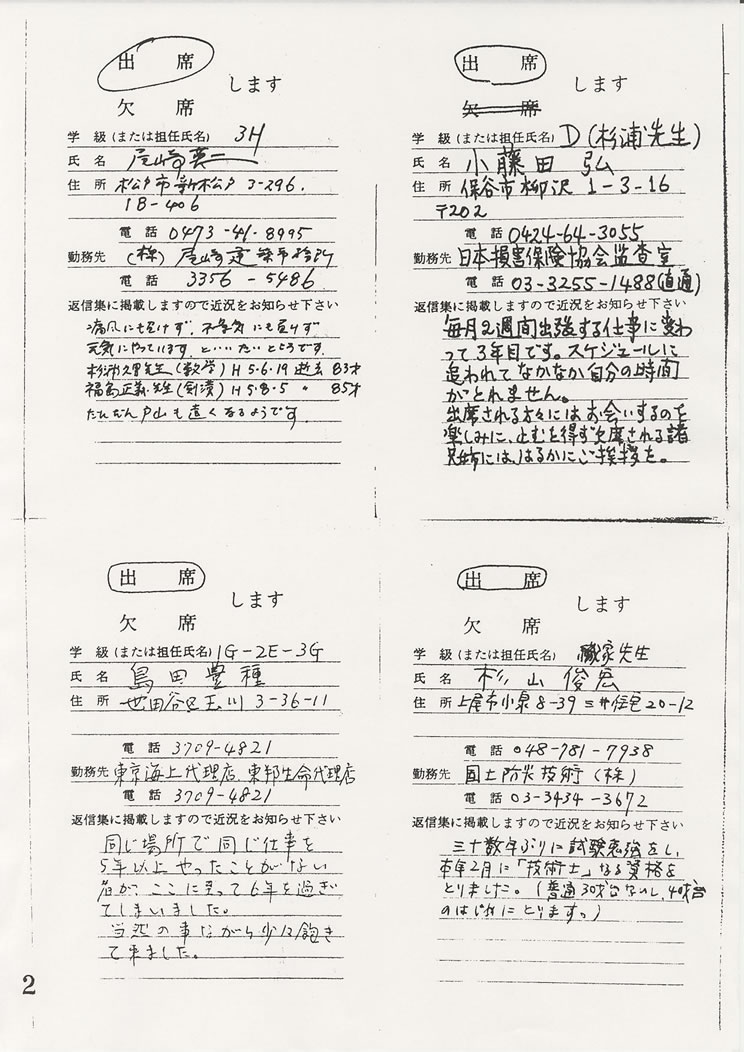 出 席
します
欠 席
学 級 (または担任氏名) 3H
氏 名 尾崎英二
住 所 松戸市新松戸 3-296.
1B-406
電 話 0473-41-8995
勤務先 (株) 尾崎建築事務所
電 話 3356-5486
返信集に掲載しますので近況をお知らせ下さい
痛風にも負けず、不景気にも負けず
元気にやっています、といいたいところです。
杉浦久里先生 (数学) H5.6.19 逝去 83才
福島正義先生 (剣道) H5.8.5 〃 85才
だんだん戸山も遠くなるようです
出 席
します
欠 席
学 級 (または担任氏名) D (杉浦先生)
氏 名 小藤田 弘
住 所 保谷市柳沢 1-3-16
〒202
電 話 0424-64-3055
勤務先 日本損害保険協会監査室
電 話 03-3255-1488(直通)
返信集に掲載しますので近況をお知らせ下さい
毎月2週間出張する仕事に変わ
って3年目です。スケジュールに
追われてなかなか自分の時間
がとれません。
出席される方々にはお会いするのを
楽しみに、止むを得ず欠席される諸
兄姉には、はるかにご挨拶を。
出 席
します
欠 席
学 級 (または担任氏名) 1G-2E-3G
氏 名 島田豊種
住 所 世田谷区玉川 3-36-11
電 話 3709-4821
勤務先 東京海上代理店、東邦生命代理店
電 話 3709-4821
返信集に掲載しますので近況をお知らせ下さい
同じ場所で同じ仕事を
5年以上やったことがない
君が、ここに至って6年を過ぎ
てしまいました。
当然の事ながら少々飽き
て来ました。
出 席
します
欠 席
学 級 (または担任氏名) 家先生
氏 名 杉山俊宏
住 所 上尾市小泉 8-39 三井住宅 20-12
電 話 048-781-7938
勤務先 国土防災技術 (株)
電 話 03-3434-3672
返信集に掲載しますので近況をお知らせ下さい
三十数年ぶりに試験勉強をし、
本年2月に「技術士」なる資格を
とりました。(普通30才台ないし、40才台
のはじめにとります。)
2